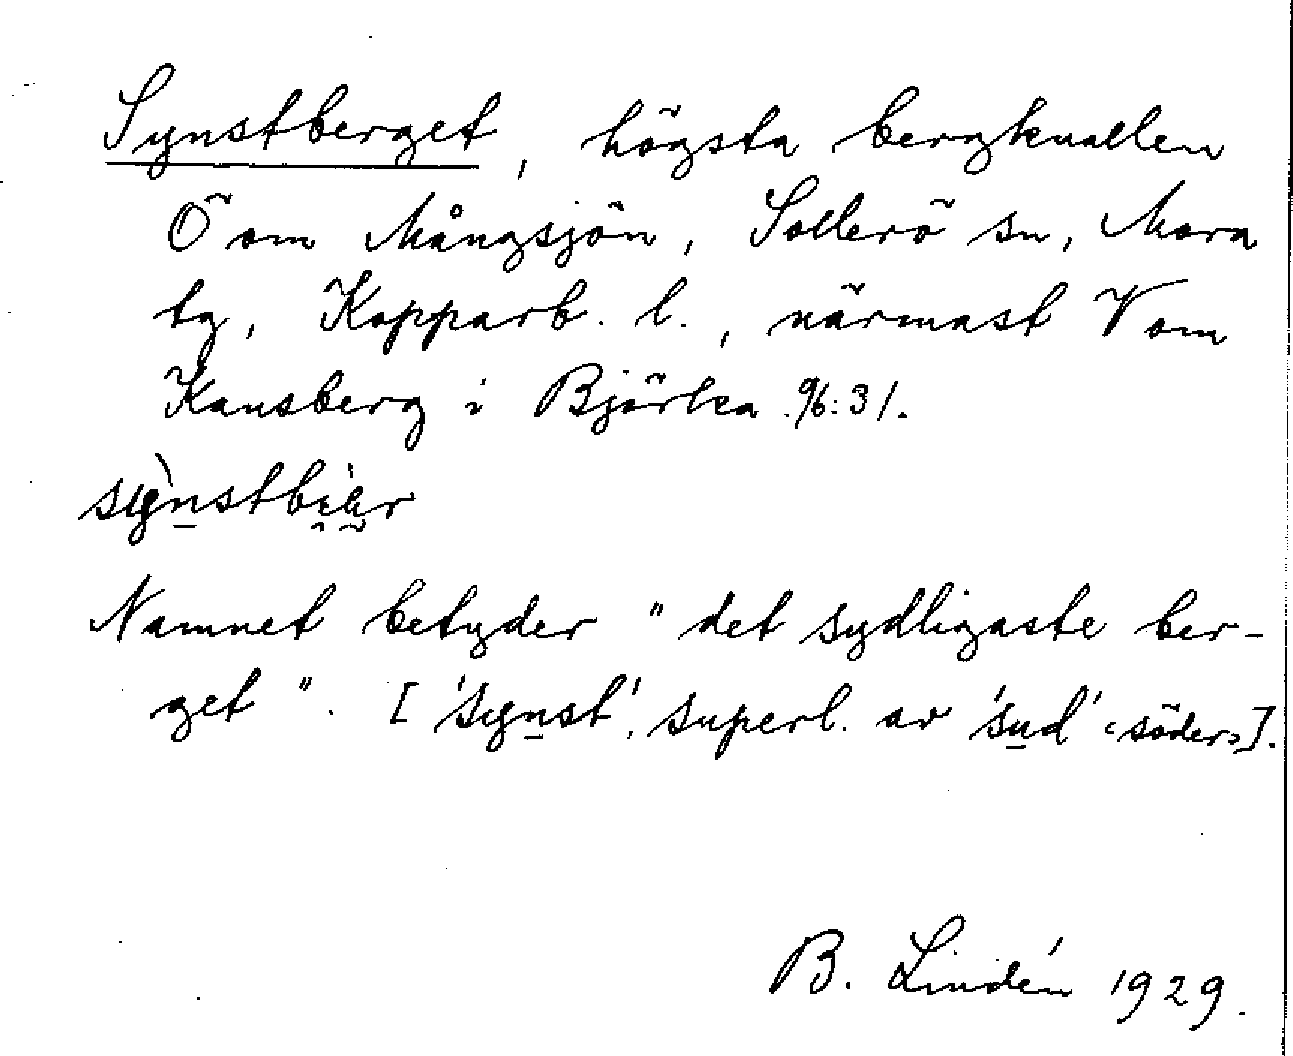 Synstberget, högsta bergknallen
Ö om Mångsjön, Sollerö sn, Mora
tg, Kopparb. l., närmast V om
Kansberg i Björka 96:31.
Namnet betyder "det sydligaste ber-
get". ['synst', superl. av 'sud' ‹söder›].
B. Lindén 1929.